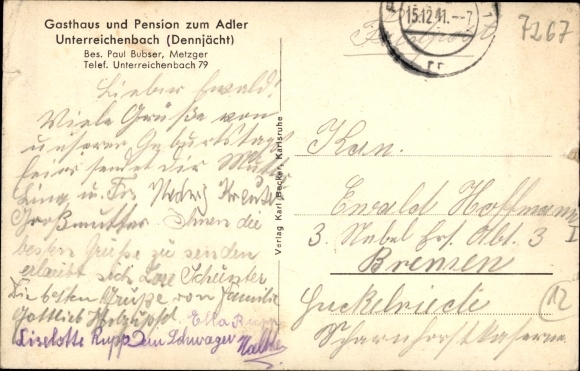 Gasthaus und Pension zum Adler
Unterreichenbach (Dennjächt)
Bes. Paul Bubser, Metzger
Telef. Unterreichenbach 79
15.12.41.--7
7267
Feldpost
Lieber Ewald!
Viele Grüße von
unserer Geburtstags
feier sendet dir
Großmutter. Ihnen die
besten Grüße zu senden
erlaubt sich Schuster
Die besten Grüße von Familie
Gottlieb
Ella Rupp
Liselotte Rupp dein Schwager Walter
Verlag Karl Becker, Karlsruhe
Kan.
Ewald Hoffmann
3. Nebel Ers. Abt. 3
Bremen
Huckelriede
Scharnhorstkaserne
12